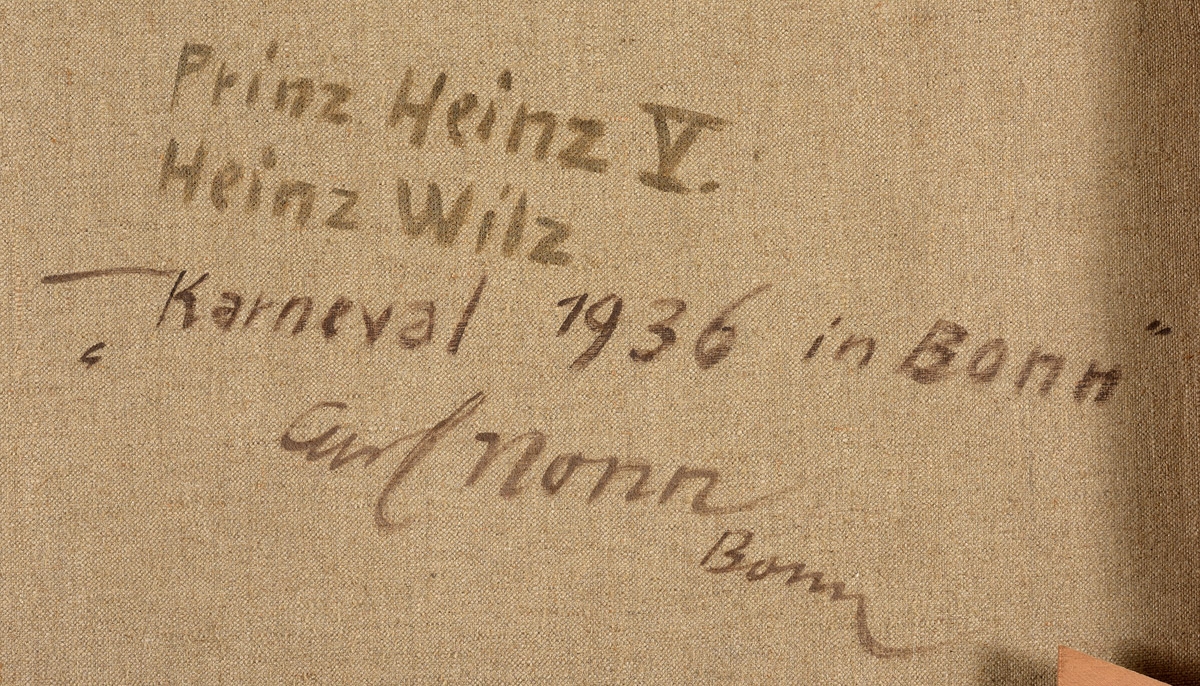 Prinz Heinz V.
Heinz Wilz
„Karneval 1936 in Bonn“
Carl Nonn
Bonn